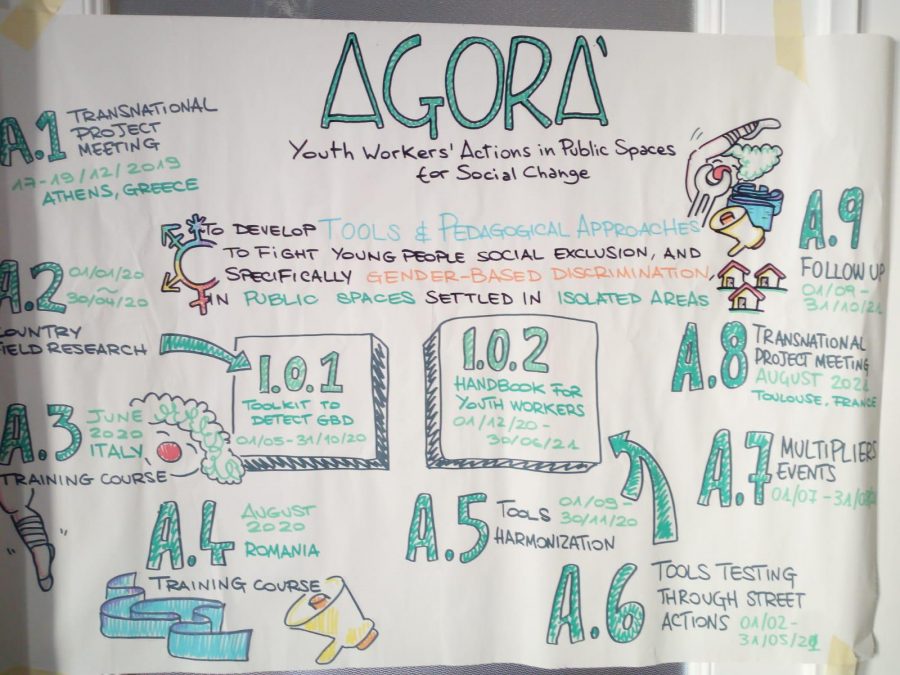 AGORA'
Youth Workers' Actions in Public Spaces
for Social Change
TO DEVELOP TOOLS & PEDAGOGICAL APPROACHES
TO FIGHT YOUNG PEOPLE SOCIAL EXCLUSION, AND
SPECIFICALLY GENDER-BASED DISCRIMINATION,
IN PUBLIC SPACES SETTLED IN ISOLATED AREAS
A.1
TRANSNATIONAL
PROJECT
MEETING
17-19/12/2019
ATHENS, GREECE
A.2
01/01/20
~
30/04/20
COUNTRY
FIELD RESEARCH
I.O.1
TOOLKIT TO
DETECT GBD
01/05-31/10/20
I.O.2
HANDBOOK FOR
YOUTH WORKERS
01/12/20-
30/06/21
A.3
JUNE
2020
ITALY
TRAINING COURSE
A.4
AUGUST
2020
ROMANIA
TRAINING COURSE
A.5
TOOLS
01/09-
30/11/20
HARMONIZATION
A.6
TOOLS TESTING
THROUGH STREET
ACTIONS 01/02-
31/05/21
A.7
MULTIPLIERS
EVENTS
01/07-
A.8
TRANSNATIONAL
PROJECT MEETING
AUGUST
TOULOUSE, FRANCE
A.9
FOLLOW UP
01/09-
31/10/21